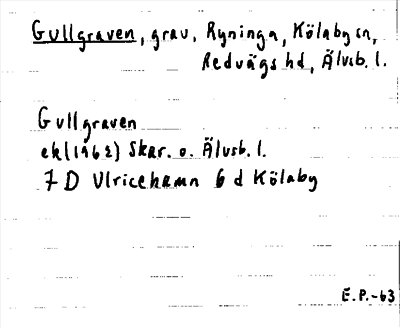 Gullgraven, grav, Ryninga, Kölaby sn,
Redvägs hd, Älvsb. l.
Gullgraven
ek (1962) Skar. o. Älvsb. l.
7 D Ulricehamn 6 d Kölaby
E.P.-63